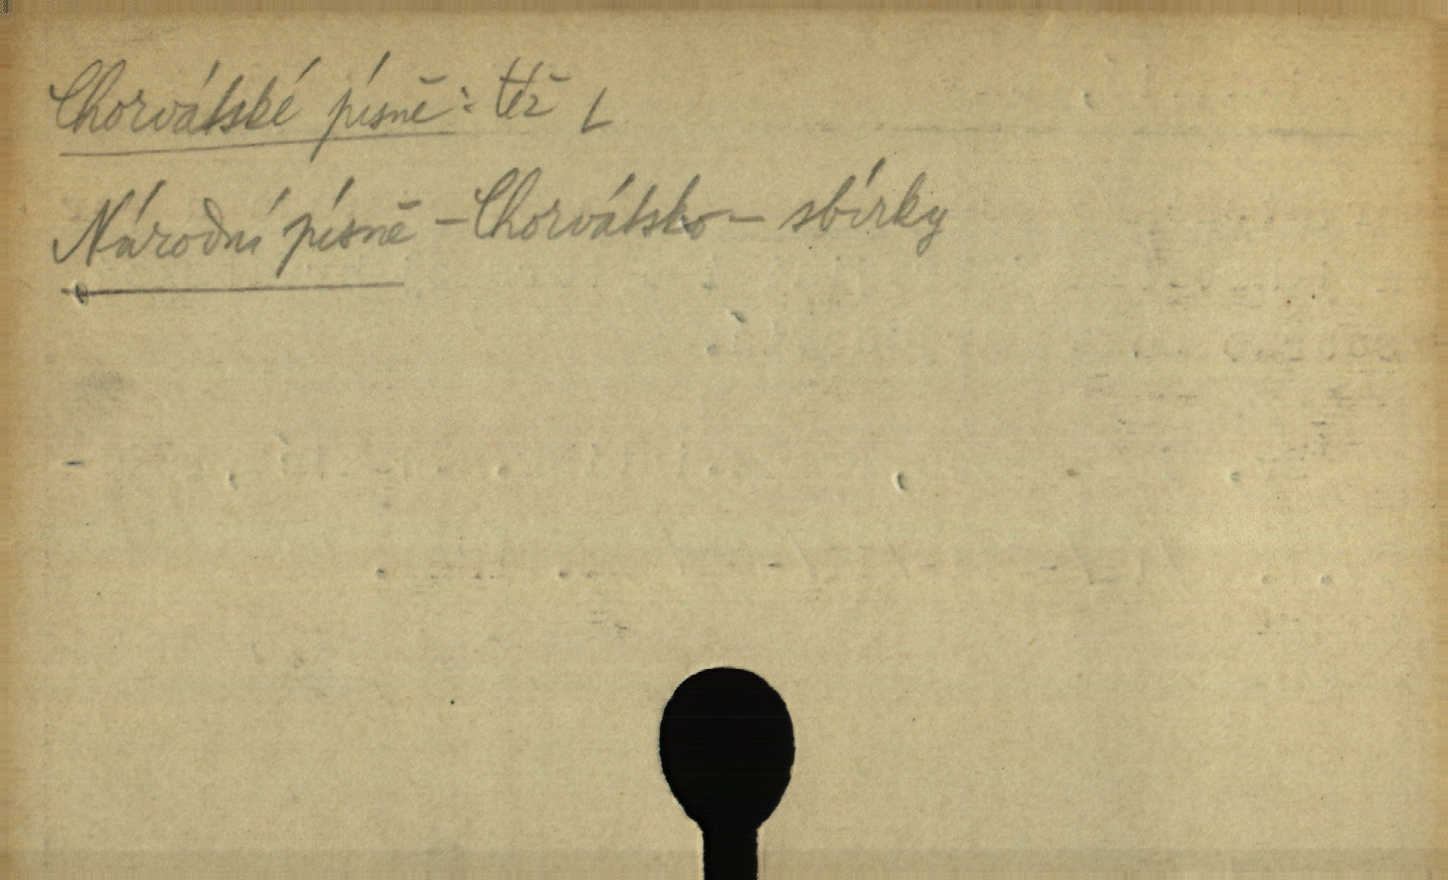 Chorvátské písně: též L
Národní písně - Chorvátsko - sbírky